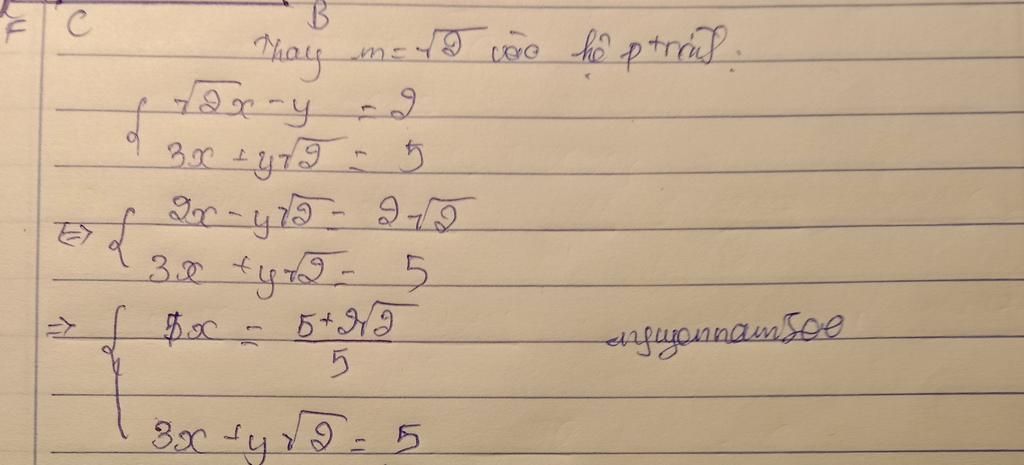 F C B
Thay m = √2 vào hệ ptrình:
{ √2x - y = 2
3x + y√2 = 5
<=> { 2x - y√2 = 2√2
3x + y√2 = 5
=> { x = (5+2√2)/5 nguyennam500
3x + y√2 = 5